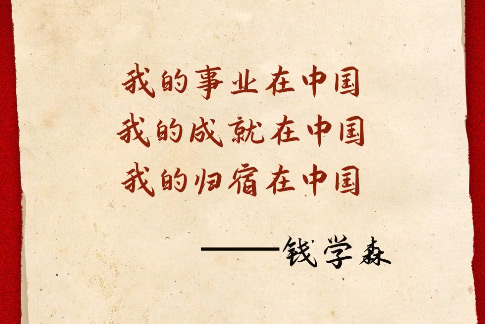 我的事业在中国
我的成就在中国
我的归宿在中国
——钱学森